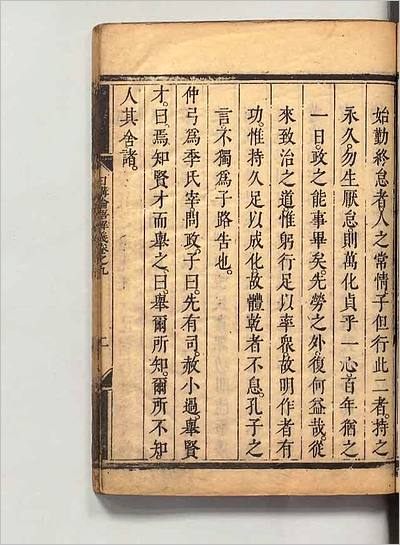 始勤終怠者人之常情子但行此二者持之
永久勿生厭怠則萬化貞乎一心百年猶之
一日政之能事畢矣先勞之外復何益哉從
來致治之道惟躬行足以率衆故明作者有
功惟持久足以成化故體乾者不息孔子之
言不獨爲子路告也
仲弓爲季氏宰問政子曰先有司赦小過舉賢
才曰焉知賢才而舉之曰舉爾所知爾所不知
人其舍諸
日講 義卷之九